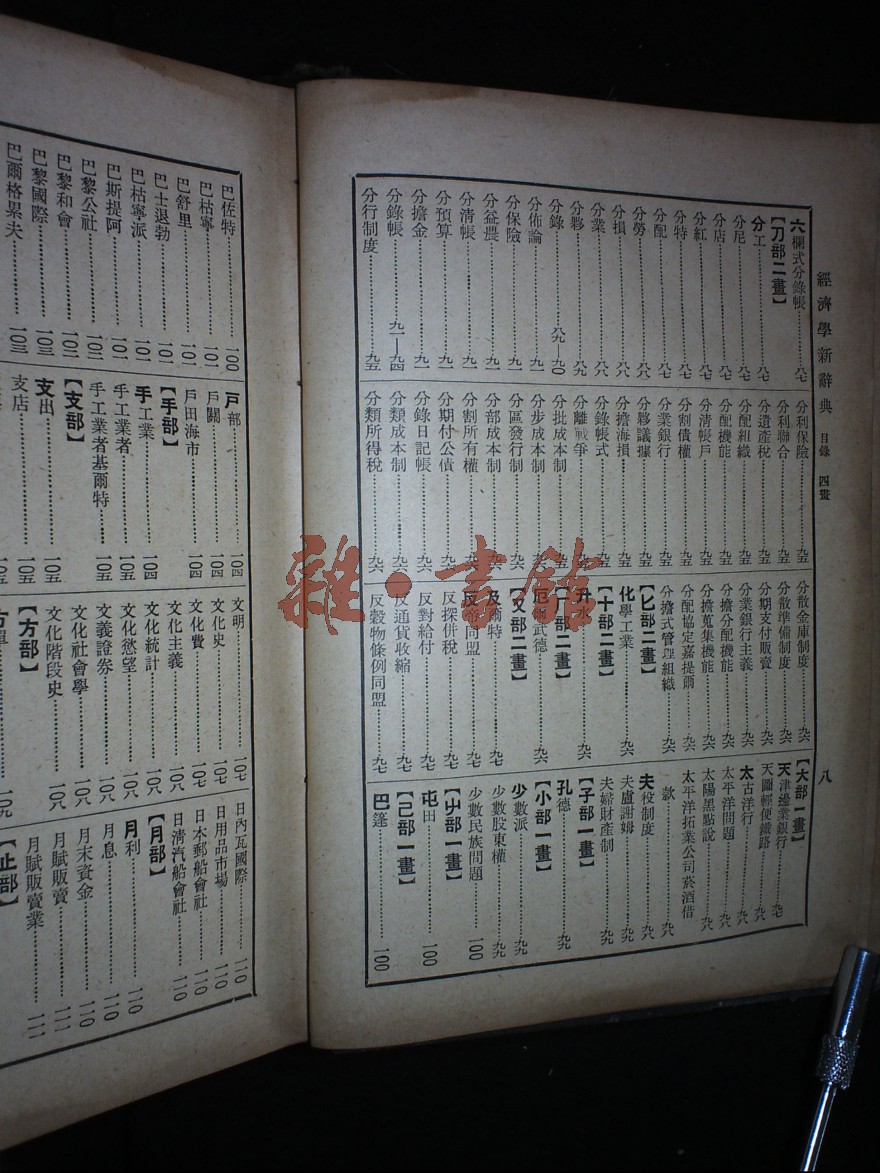 經濟學新辭典 目錄 四畫
八
六欄式分錄帳 八七
【刀部二畫】
分工 八七
分尼 八七
分店 八七
分紅 八七
分特 八七
分配 八七
分勞 八八
分損 八八
分業 八八
分夥 八九
分錄 八九—九〇
分佈論 九一
分保險 九一
分益農 九一
分清帳 九一
分預算 九一
分擔金 九一
分錄帳 九一—九四
分行制度 九五
分利保險 九五
分利聯合 九五
分遺產稅 九五
分配組織 九五
分配機能 九五
分清帳戶 九五
分割債權 九五
分業銀行 九五
分夥議據 九五
分擔海損 九五
分錄帳式 九五
分離戰爭 九五
分批成本制 九五
分步成本制 九六
分區發行制 九六
分部成本制 九六
分割所有權 九六
分期付公債 九六
分錄日記帳 九六
分類成本制 九六
分類所得稅 九六
分散金庫制度 九六
分散準備制度 九六
分期支付販賣 九六
分業銀行主義 九六
分擔分配機能 九六
分擔蒐集機能 九六
分配協定嘉提爾 九六
分擔式管理組織 九六
【匕部二畫】
化學工業 九六
【十部二畫】
升水 九六
【厂部二畫】
武德 九六
【又部二畫】
及爾特 九七
反帝同盟 九七
反探併稅 九七
反對給付 九七
反通貨收縮 九七
反穀物條例同盟 九七
【大部一畫】
天津邊業銀行 九七
天圖輕便鐵路 九八
太古洋行 九八
太平洋問題 九八
太陽黑點說 九八
太平洋拓業公司菸酒借款 九八
夫役制度 九八
夫盧謝姆 九九
夫婦財產制 九九
【子部一畫】
孔德 九九
【小部一畫】
少數派 九九
少數股東權 九九
少數民族問題 一〇〇
【屮部一畫】
屯田 一〇〇
【己部一畫】
巴篷 一〇〇
巴佐特 一〇〇
巴枯寧 一〇一
巴舒里 一〇一
巴士退勃 一〇一
巴枯寧派 一〇一
巴斯提阿 一〇一
巴黎公社 一〇二
巴黎和會 一〇二
巴黎國際 一〇三
巴爾格累夫 一〇三
戶部 一〇四
戶關 一〇四
戶田海市 一〇四
【手部】
手工業 一〇四
手工業者 一〇五
手工業者基爾特 一〇五
【支部】
支出 一〇五
支店 一〇五
文明 一〇七
文化史 一〇七
文化費 一〇七
文化主義 一〇八
文化統計 一〇八
文化慾望 一〇八
文義證券 一〇八
文化社會學 一〇八
文化階段史 一〇八
【方部】
日內瓦國際 一一〇
日用品市場 一一〇
日本郵船會社 一一〇
日清汽船會社 一一〇
【月部】
月利 一一〇
月息 一一〇
月末資金 一一〇
月賦販賣 一一一
月賦販賣業 一一一
【止部】
雜·書館